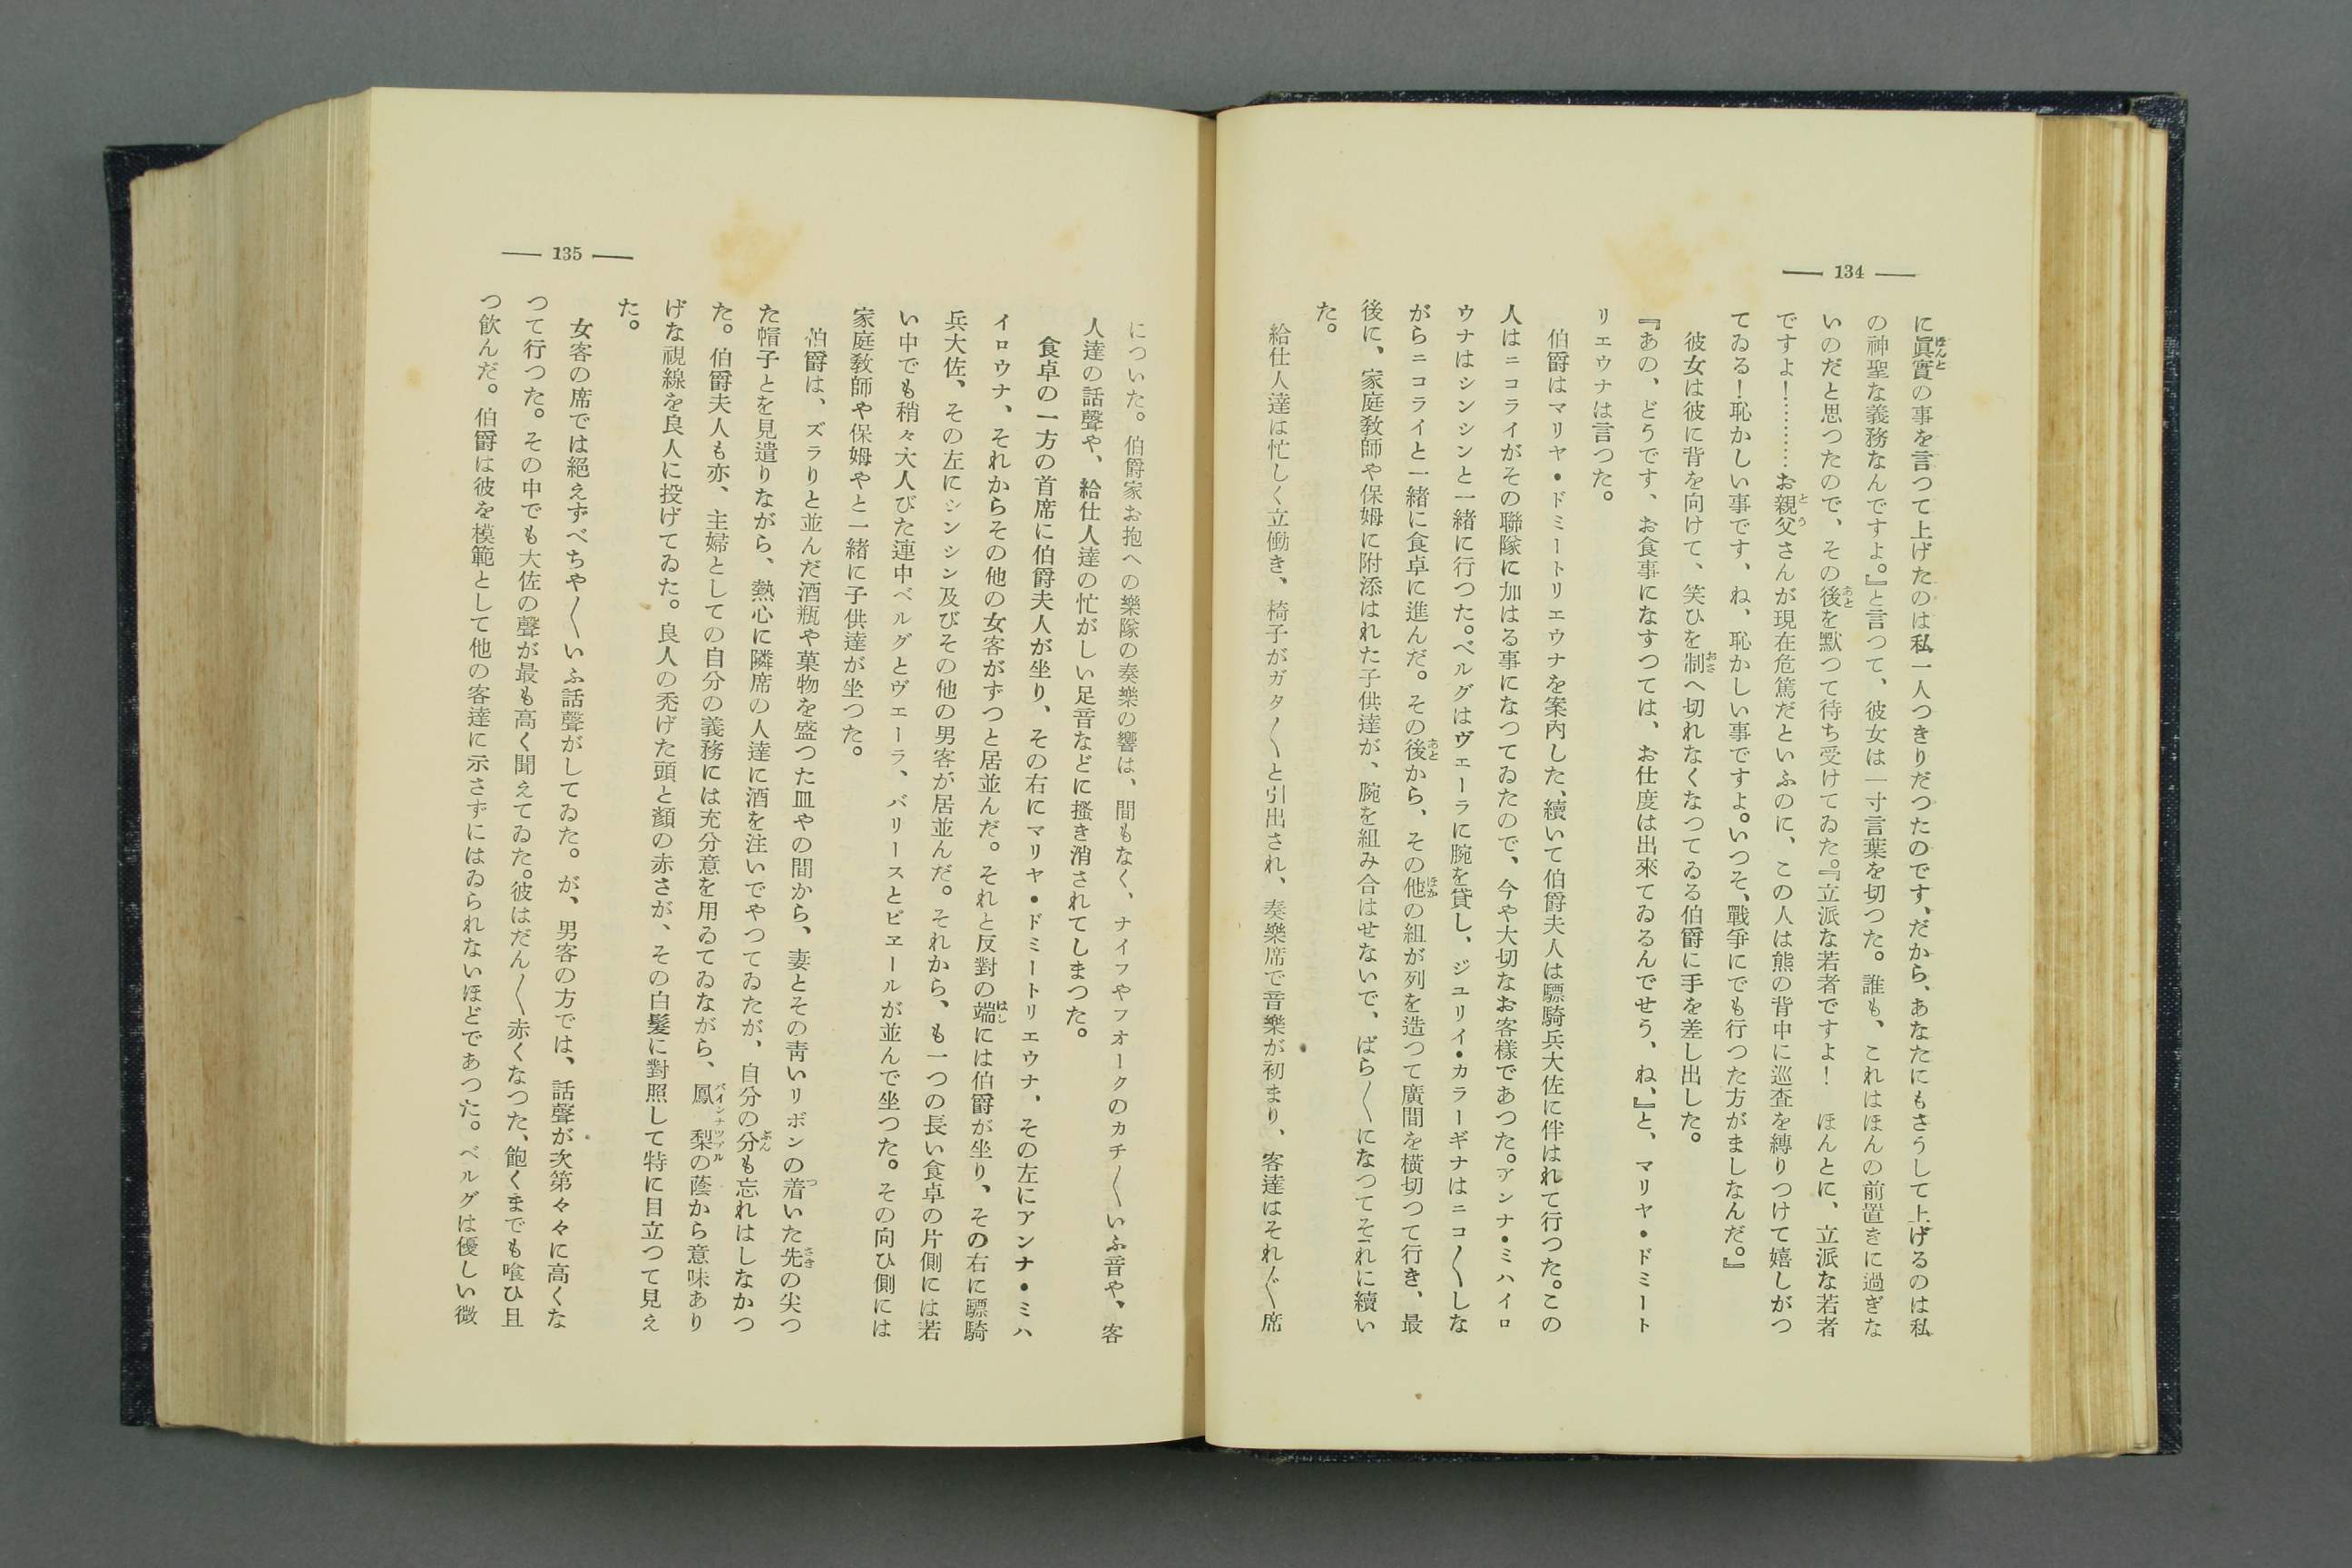 — 134 —
に眞實の事を言つて上げたのは私一人つきりだつたのです、だから、あなたにもさうして上げるのは私
の神聖な義務なんですよ。』と言つて、彼女は一寸言葉を切つた。誰も、これはほんの前置きに過ぎな
いのだと思つたので、その後を默つて待ち受けてゐた。『立派な若者ですよ！　ほんとに、立派な若者
ですよ！…………お親父さんが現在危篤だといふのに、この人は熊の背中に巡査を縛りつけて嬉しがつ
てゐる！恥かしい事です、ね、恥かしい事ですよ。いつそ、戰爭にでも行つた方がましなんだ。』
彼女は彼に背を向けて、笑ひを制へ切れなくなつてゐる伯爵に手を差し出した。
『あの、どうです、お食事になすつては、お仕度は出來てゐるんでせう、ね、』と、マリヤ・ドミート
リエウナは言つた。
伯爵はマリヤ・ドミートリエウナを案內した、續いて伯爵夫人は驃騎兵大佐に伴はれて行つた。この
人はニコライがその聯隊に加はる事になつてゐたので、今や大切なお客樣であつた。アンナ・ミハイロ
ウナはシンシンと一緒に行つた。ベルグはヴエーラに腕を貸し、ジユリイ・カラーギナはニコ〱しな
がらニコライと一緒に食卓に進んだ。その後から、その他の組が列を造つて廣間を橫切つて行き、最
後に、家庭教師や保姆に附添はれた子供達が、腕を組み合はせないで、ばら〱になつてそれに續い
た。
給仕人達は忙しく立働き、椅子がガタ〱と引出され、奏樂席で音樂が初まり、客達はそれ〲席
— 135 —
についた。伯爵家お抱への樂隊の奏樂の響は、間もなく、ナイフやフオークのカチ〱いふ音や、客
人達の話聲や、給仕人達の忙がしい足音などに搔き消されてしまつた。
食卓の一方の首席に伯爵夫人が坐り、その右にマリヤ・ドミートリエウナ、その左にアンナ・ミハ
イロウナ、それからその他の女客がずつと居並んだ。それと反對の端には伯爵が坐り、その右に驃騎
兵大佐、その左にシンシン及びその他の男客が居並んだ。それから、も一つの長い食卓の片側には若
い中でも稍々大人びた連中ベルグとヴエーラ、バリースとピエールが並んで坐つた。その向ひ側には
家庭教師や保姆やと一緒に子供達が坐つた。
伯爵は、ズラりと並んだ酒瓶や菓物を盛つた皿やの間から、妻とその靑いリボンの着いた先の尖つ
た帽子とを見遣りながら、熱心に隣席の人達に酒を注いでやつてゐたが、自分の分も忘れはしなかつ
た。伯爵夫人も亦、主婦としての自分の義務には充分意を用ゐてゐながら、鳳梨の蔭から意味あり
げな視線を良人に投げてゐた。良人の禿げた頭と顏の赤さが、その白髮に對照して特に目立つて見え
た。
女客の席では絕えずべちや〱いふ話聲がしてゐた。が、男客の方では、話聲が次第々々に高くな
つて行つた。その中でも大佐の聲が最も高く聞えてゐた。彼はだん〱赤くなつた、飽くまでも喰ひ且
つ飮んだ。伯爵は彼を模範として他の客達に示さずにはゐられないほどであつた。ベルグは優しい微